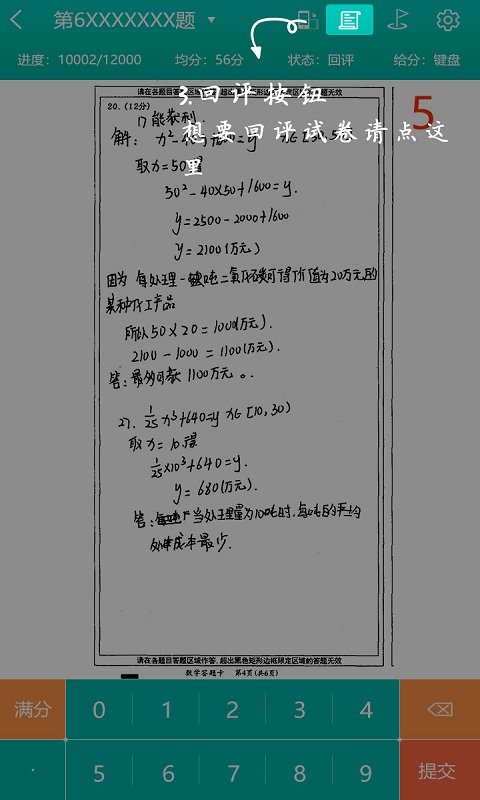 第6XXXXXXX题
进度：10002/12000 均分：56分 状态：回评 给分：键盘
请在各题目答题区域作答，超出黑色矩形边框限定区域的答题无效
3.回评按钮
想要回评试卷请点这里
5
20.（12分）
1) 能获利
解：
取x=50得
50²-40×50+1600=y.
y=2500-2000+1600
y=2100(万元)
因为 每处理一吨二氧化碳可得价值为20万元的
某种化工产品
所以50×20=1000(万元).
2100-1000=1100(万元).
答：最多可获1100万元。
2). 1/25 x³+640=y x∈[10,30)
取x=10得
1/25×10³+640=y.
y=680(万元).
答：当处理量为10吨时,每吨的平均
处理成本最少.
请在各题目答题区域作答，超出黑色矩形边框限定区域的答题无效
数学答题卡 第4页(共6页)
满分 0 1 2 3 4
. 5 6 7 8 9 提交